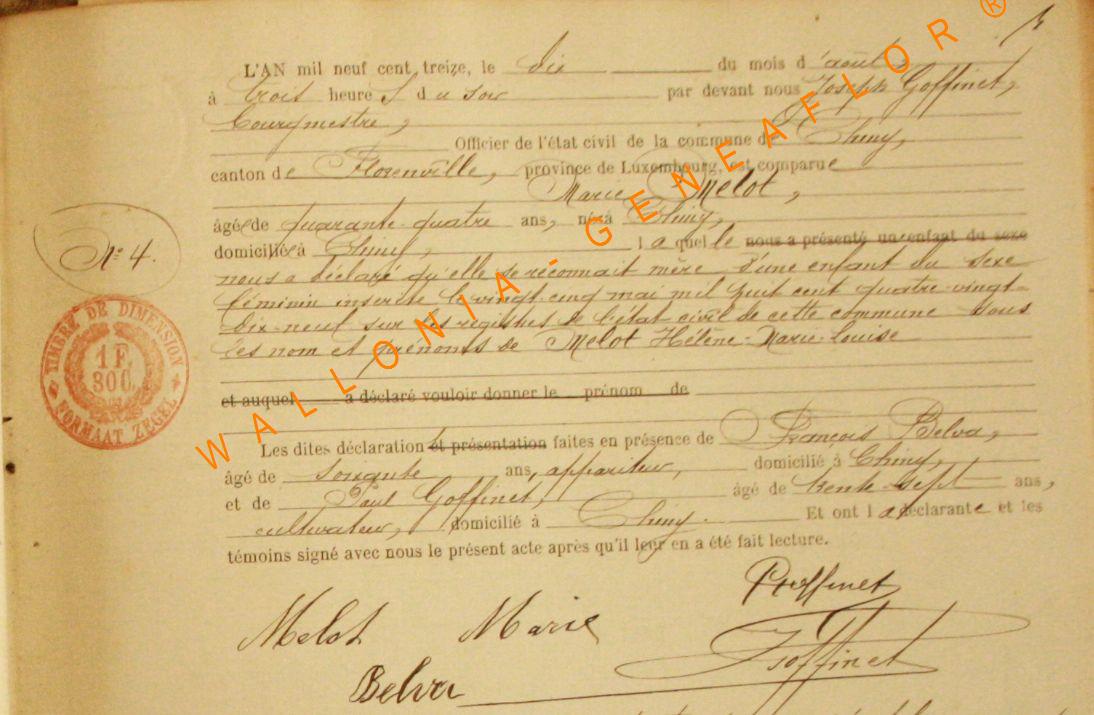 L'AN mil neuf cent treize, le dix du mois d'août,
à trois heures du soir par devant nous Joseph Goffinet,
bourgmestre,
Officier de l'état civil de la commune de Chiny,
canton de Florenville, province de Luxembourg, est comparue
Marie Melot,
âgée de quarante-quatre ans, née à Chiny,
domiciliée à Chiny, laquelle nous a présenté un enfant du sexe
nous a déclaré qu'elle se réconnait mère d'une enfant du sexe
féminin inscrite le vingt-cinq mai mil huit cent quatre-vingt
dix-neuf sur les registres de l'état civil de cette commune sous
les nom et prénoms de Melot Hélène-Marie-Louise
et auquel a déclaré vouloir donner le prénom de
Les dites déclaration et présentation faites en présence de François Belva,
âgé de soixante ans, appariteur, domicilié à Chiny,
et de Paul Goffinet, âgé de trente-sept ans,
cultivateur, domicilié à Chiny. Et ont la déclarante et les
témoins signé avec nous le présent acte après qu'il leur en a été fait lecture.
N° 4.
TIMBRE DE DIMENSION
1 F.
30 C.
FORMAAT ZEGEL
PGoffinet
Melot Marie
JGoffinet
Belva
WALLONIA - GENEAFLOR ®